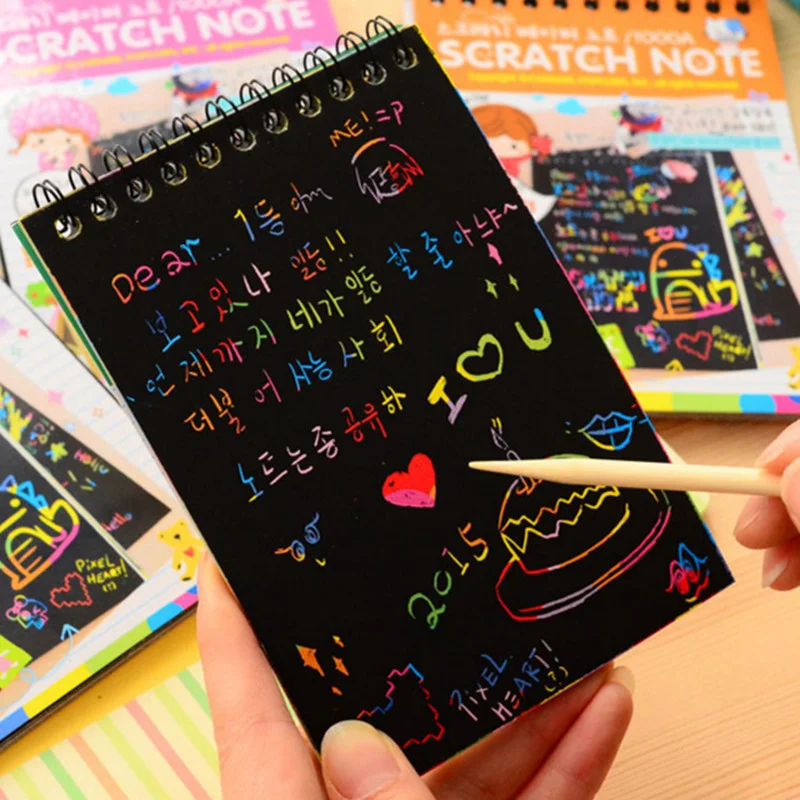 SCRATCH NOTE
/1000A
SCRATCH NOTE
ME!=P
Dear... 1등
보고있나 일등!!
언제까지 네가 일등 할 줄 아냐~
더불어 사능 사회
노트는 좀 공유하
I ♡ U
2015
PixEL
HEART!
(?)
I ♡ U
PixEL
HEART!
Hello
hello.
PixEL
HEART!
(?)